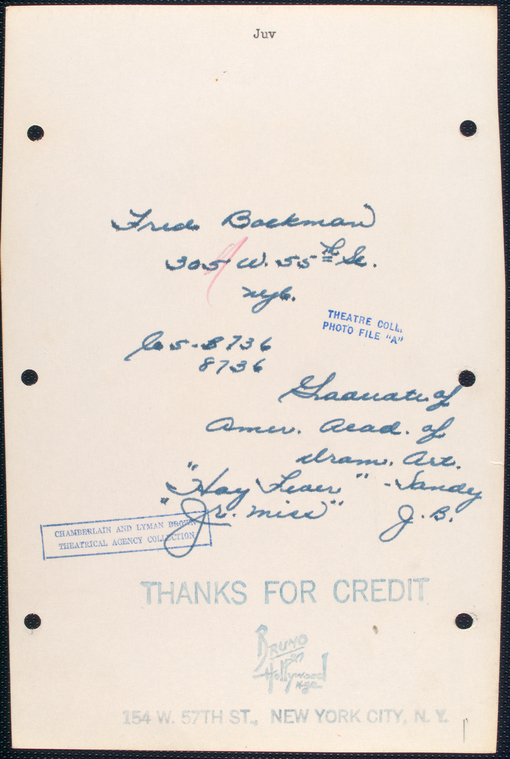 Juv
Fred Bockman
305 W. 55th St.
NYC.
THEATRE COLL.
PHOTO FILE "A"
Co 5-8736
8736
Graduate of
Amer. Acad. of
Dram. Art.
"Hay Fever" - Sandy
"Jr. Miss" J.B.
CHAMBERLAIN AND LYMAN BROWN
THEATRICAL AGENCY COLLECTION
THANKS FOR CREDIT
BRUNO
of
Hollywood
NYC
154 W. 57TH ST., NEW YORK CITY, N. Y.